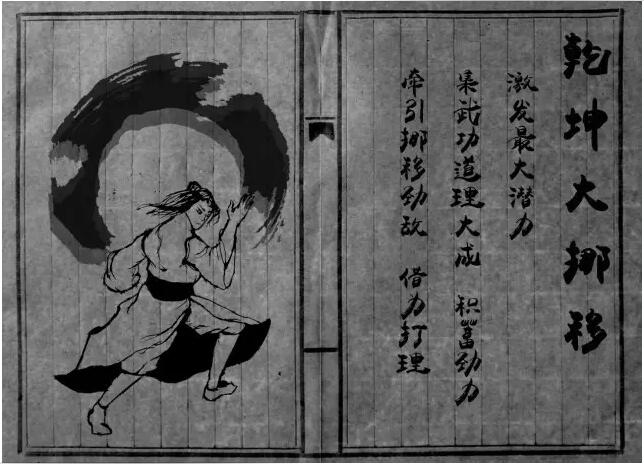 乾坤大挪移
激发最大潜力
集武功道理大成 积蓄劲力
牵引挪移劲敌 借力打理